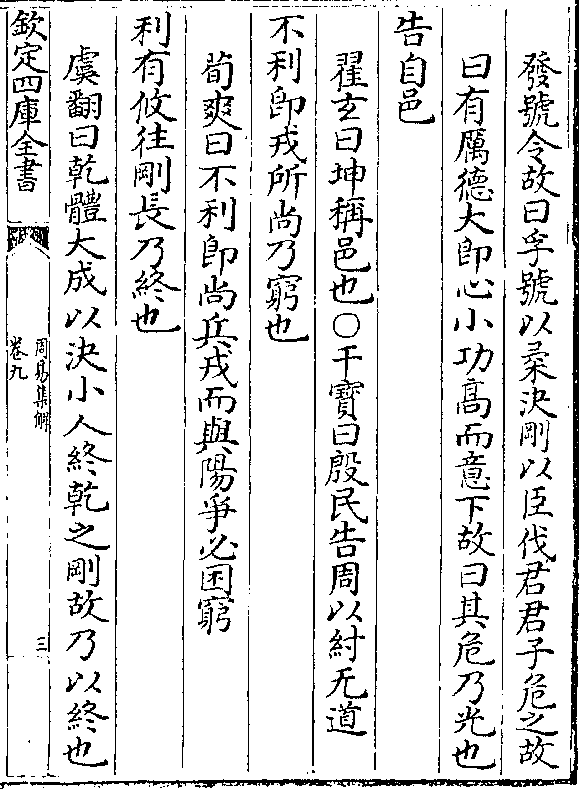 發號令故曰孚號以柔決剛以臣伐君君子危之故
曰有厲德大即心小功髙而意下故曰其危乃光也
告自邑
翟玄曰坤稱邑也〇干寳曰殷民告周以紂无道
不利即戎所尚乃窮也
荀爽曰不利即尚兵戎而與陽爭必困窮
利有攸往剛長乃終也
虞翻曰乾體大成以決小人終乾之剛故乃以終也
欽定四庫全書
周易集解
卷九
三